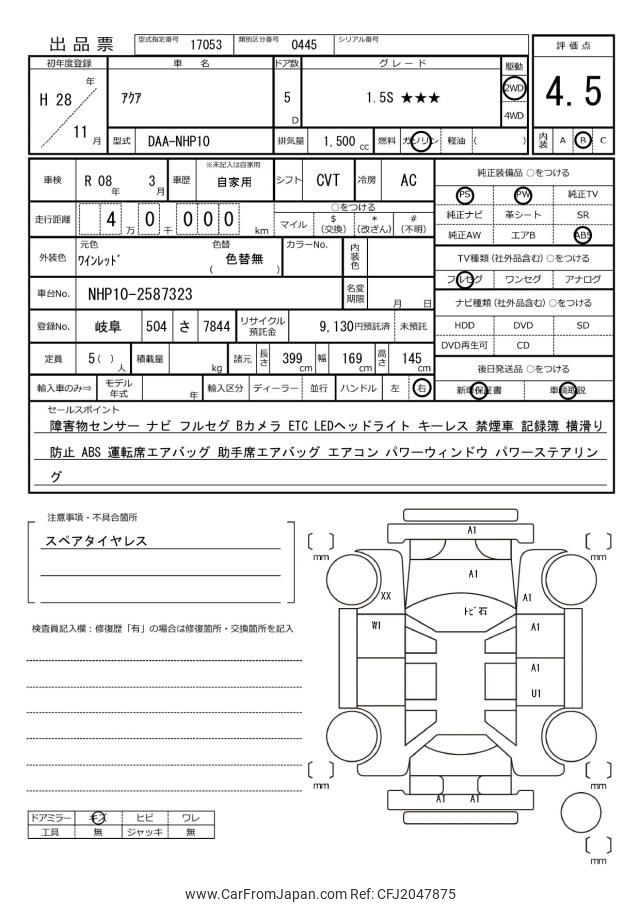 出品票 型式指定番号 17053 類別区分番号 0445 シリアル番号
評価点
4.5
内装 A B C
初年度登録 車名 ドア数 グレード 駆動
H 28 年 11 月
アクア 5 D 1.5S ★★★ 2WD
4WD
型式 DAA-NHP10 排気量 1,500 cc 燃料 ガソリン 軽油 ( )
車検 R 08 年 3 月 車歴 ※未記入は自家用 自家用 シフト CVT 冷房 AC
走行距離 4 万 0 千 0 0 0 km
○をつける
マイル $ (交換) * (改ざん) # (不明)
外装色 元色 ワインレッド 色替 ( 色替無 ) カラーNo. 内装色
車台No. NHP10-2587323 名変期限 月 日
登録No. 岐阜 504 さ 7844 リサイクル預託金 9,130円預託済 未預託
定員 5( ) 人 積載量 kg 諸元 長さ 399 cm 幅 169 cm 高さ 145 cm
輸入車のみ⇒ モデル年式 年 輸入区分 ディーラー 並行 ハンドル 左 右
純正装備品 ○をつける
PS PW 純正TV
純正ナビ 革シート SR
純正AW エアB ABS
TV種類(社外品含む)○をつける
フルセグ ワンセグ アナログ
ナビ種類(社外品含む)○をつける
HDD DVD SD
DVD再生可 CD
後日発送品 ○をつける
新車保証書 車輌取説
セールスポイント
障害物センサー ナビ フルセグ Bカメラ ETC LEDヘッドライト キーレス 禁煙車 記録簿 横滑り
防止 ABS 運転席エアバッグ 助手席エアバッグ エアコン パワーウィンドウ パワーステアリン
グ
注意事項・不具合箇所
スペアタイヤレス
検査員記入欄：修復歴「有」の場合は修復箇所・交換箇所を記入
ドアミラー キズ ヒビ ワレ
工具 無 ジャッキ 無
A1
mm mm
A1
XX A1
トビ石
W1 A1
A1
U1
mm mm
A1 A1
mm
www.CarFromJapan.com Ref: CFJ2047875